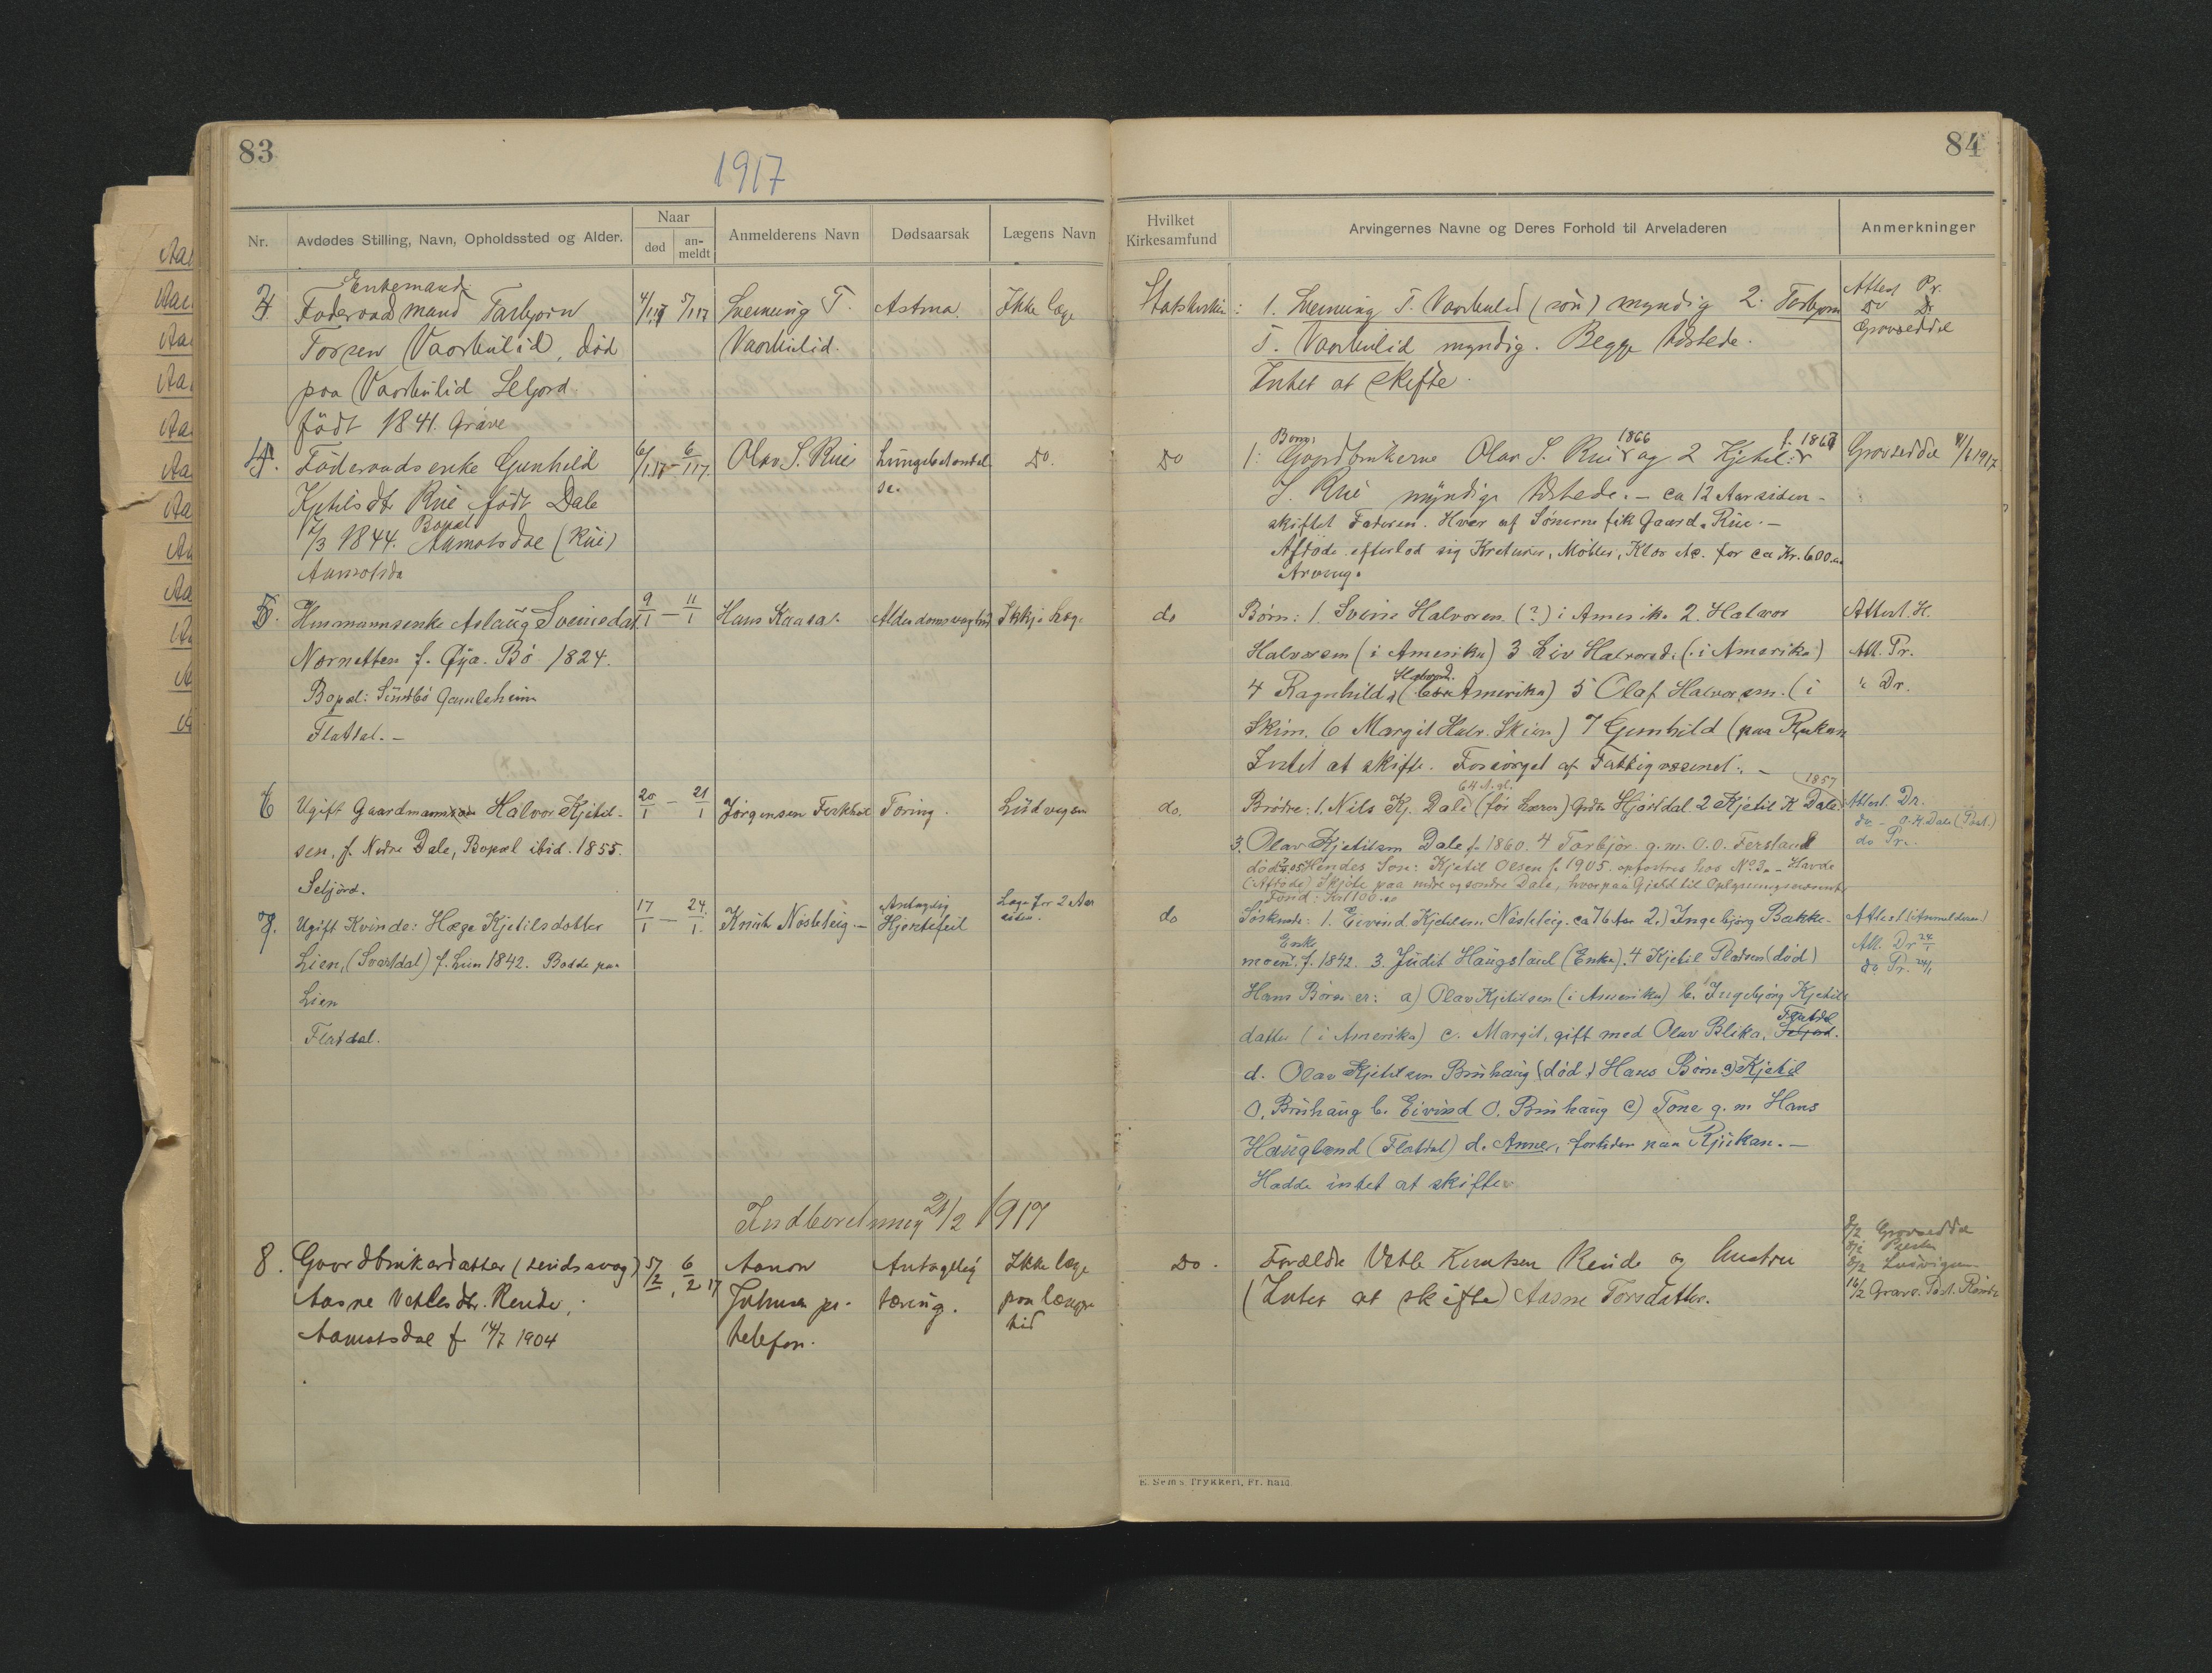 83
1917
Nr.
Avdødes Stilling, Navn, Opholdssted og Alder.
Naar
død
an-
meldt
Anmelderens Navn
Dødsaarsak
Lægens Navn
Enkemand
Foderaadmand Tarbjørn
4/1 17 5/1 17
Sveinung T.
Astma.
Ikke læge
Torsen Vaorkulid, død
Vaorkulid.
paa Vaorkulid Seljord
født 1841. Grave
4. Föderaadsenke Gunhild
6/1 17 – 6/1 17.
Olav S. Rui
Lungebetændel
Do.
se.
Kjetilsdtr Rui født Dale
Bopæl
/3 1844. Aamotsdal (Rui)
Aamotsda
5. Husmannsenke Aslaug Sveinsdat.
9/1 – 11/1
Hans Kaasa.
Alderdomsvaghed
Ikkje læge
Nornatten f. Øya. Bö 1824.
Bopæl: Sundbö Gamleheim
Flatdal. –
6 Ugift Gaardmann Halvor Kjetil-
20/1 – 21/1
Jørgensen Ferkhol
Tæring.
Ludvigsen
sen, f. Nedre Dale, Bopæl ibid. 1855.
Seljord.
7. Ugift Kvinde: Hæge Kjetilsdatter
17/1 – 24/1.
Knut Nosteteig. –
Antagelig
Hjertefeil
Læge for 2 Aar
siden.
Lien, (Svartdal) f. Lien 1842. Bodde paa
Lien
Flatdal.
Indberetning 21/2 1917
8. Gaardbrukerdatter (aandssvag)
5/2 6/2 17
Aanon
Antagelig
Ikke læge
Aasne Vetlesdtr. Reide,
Johnsen pr.
tæring.
paa længre
tid
Aamotsdal f 14/7 1904
telefon.
84
Hvilket
Kirkesamfund
Arvingernes Navne og Deres Forhold til Arveladeren
Anmerkninger
Statskirken:
1. Sveinung T. Vaorkulid (søn) myndig 2. Torbjørn
Attest Pr.
Do Dr
Gravseddel
T. Vaorkulid myndig. Begge tdstede.
Intet at skifte.
Do
Børn:
1866
f. 1867
1. Gaardbrukerne Olav S. Rui og 2 Kjetil
Gravseddel 4/1 1917
S. Rui myndige tdstede. – ca 12 Aar siden –
skiftet Faderen. Hver af Sönerne fik Gaard Rui. –
Aftøde efterlod sig Kreturer, Möbler, Klær etc. for ca Kr. 600.00
Arving.
do
Børn: 1. Svein Halvorsen (?) i Amerika 2. Halvor
Attest. H.
Halvorsen (i Amerika) 3 Liv Halvorsd. (i Amerika)
Att. Pr.
Halvorsd.
4 Ragnhild (Amerika) 5 Olaf Halvorsen. (i
" Dr.
Skien. 6 Margit Halv. Skien) 7 Gunhild (paa Rjukan
Intet at skifte. Forsörget af Fattigvæsenet. –
64 A. gl.
1857
do.
Brödre: 1. Nils Kj. Dale (før Lærer) Hjartdal. 2 Kjetil K Dale.
Attest. Dr.
do – O.K. Dale (Post.)
do Pr.
3. Olav Kjetilsen Dale f. 1860. 4 Torbjör. g.m. O.O. Fersland
død 1905 Hendes Søn: Kjetil Olsen f. 1905. opfostres hos No 3. – Havde
(Aftøde) Skjöte paa nedre og søndre Dale, hvorpaa Gjeld til Oplysningsvæsenets
Fond: Kr 1100.00
do
Söskende: 1. Eivind Kjetilsen Nosteteig. ca 76 Aar 2.) Ingebjörg Bakke-
Attest (Anmelderen)
Enke
moen f. 1842. 3. Judit Haugslaul (Enke). 4 Kjetil (død)
Att. Dr 24/1
do Pr. 24/1
Hans Börn er: a) Olav Kjetilsen (i Amerika) b. Ingebjörg Kjetils
datter (i Amerika) c. Margit, gift med Olav Bleka, Seljord.
Flatdal
d. Olav Kjetilsen Bruhaug (død) Hans Börn a) Kjetil
O. Bruhaug b. Eivind O. Bruhaug c) Tone g. m Hans
Haugland (Flatdal) d. Anne, fortiden paa Rjukan. –
Hadde intet at skifte
Do.
Forældre Vetle Knutsen Reide og hustru
8/2 Gravseddel
8/2 Presten
8/2 Ludvigsen
16/2 Gravs. Post. Reide
(Intet at skifte) Aasne Torsdatter.
E. Sem's Trykkeri, Fr.hald.